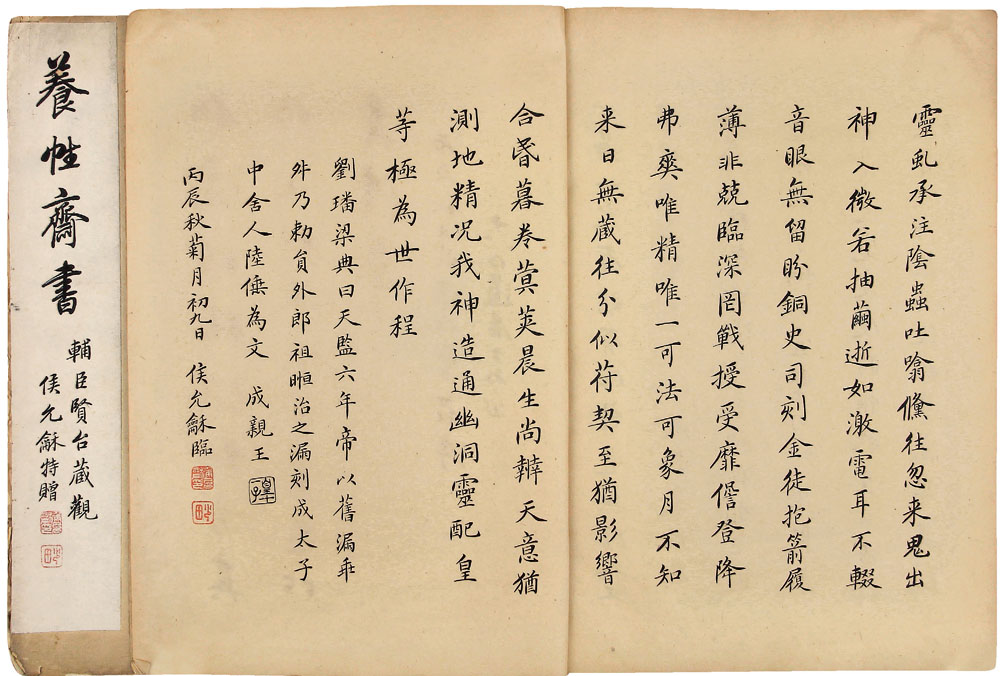 靈虬承注陰蟲吐噏儵往忽来鬼出
神入微若抽繭逝如激電耳不輟
音眼無留盼銅史司刻金徒抱箭履
薄非兢臨深罔戰授受靡僣登降
弗爽唯精唯一可法可象月不知
来日無蔵往分似苻契至猶影響
合昬暮卷蓂莢晨生尚辨天意猶
測地精况我神造通幽洞靈配皇
等極為世作程
劉璠梁典曰天監六年帝以舊漏乖
舛乃勅貟外郎祖暅治之漏刻成太子
中舍人陸倕為文 成親王
丙辰秋菊月初九日 侯允龢臨
養性齋書
輔臣賢台蔵觀
侯允龢特贈